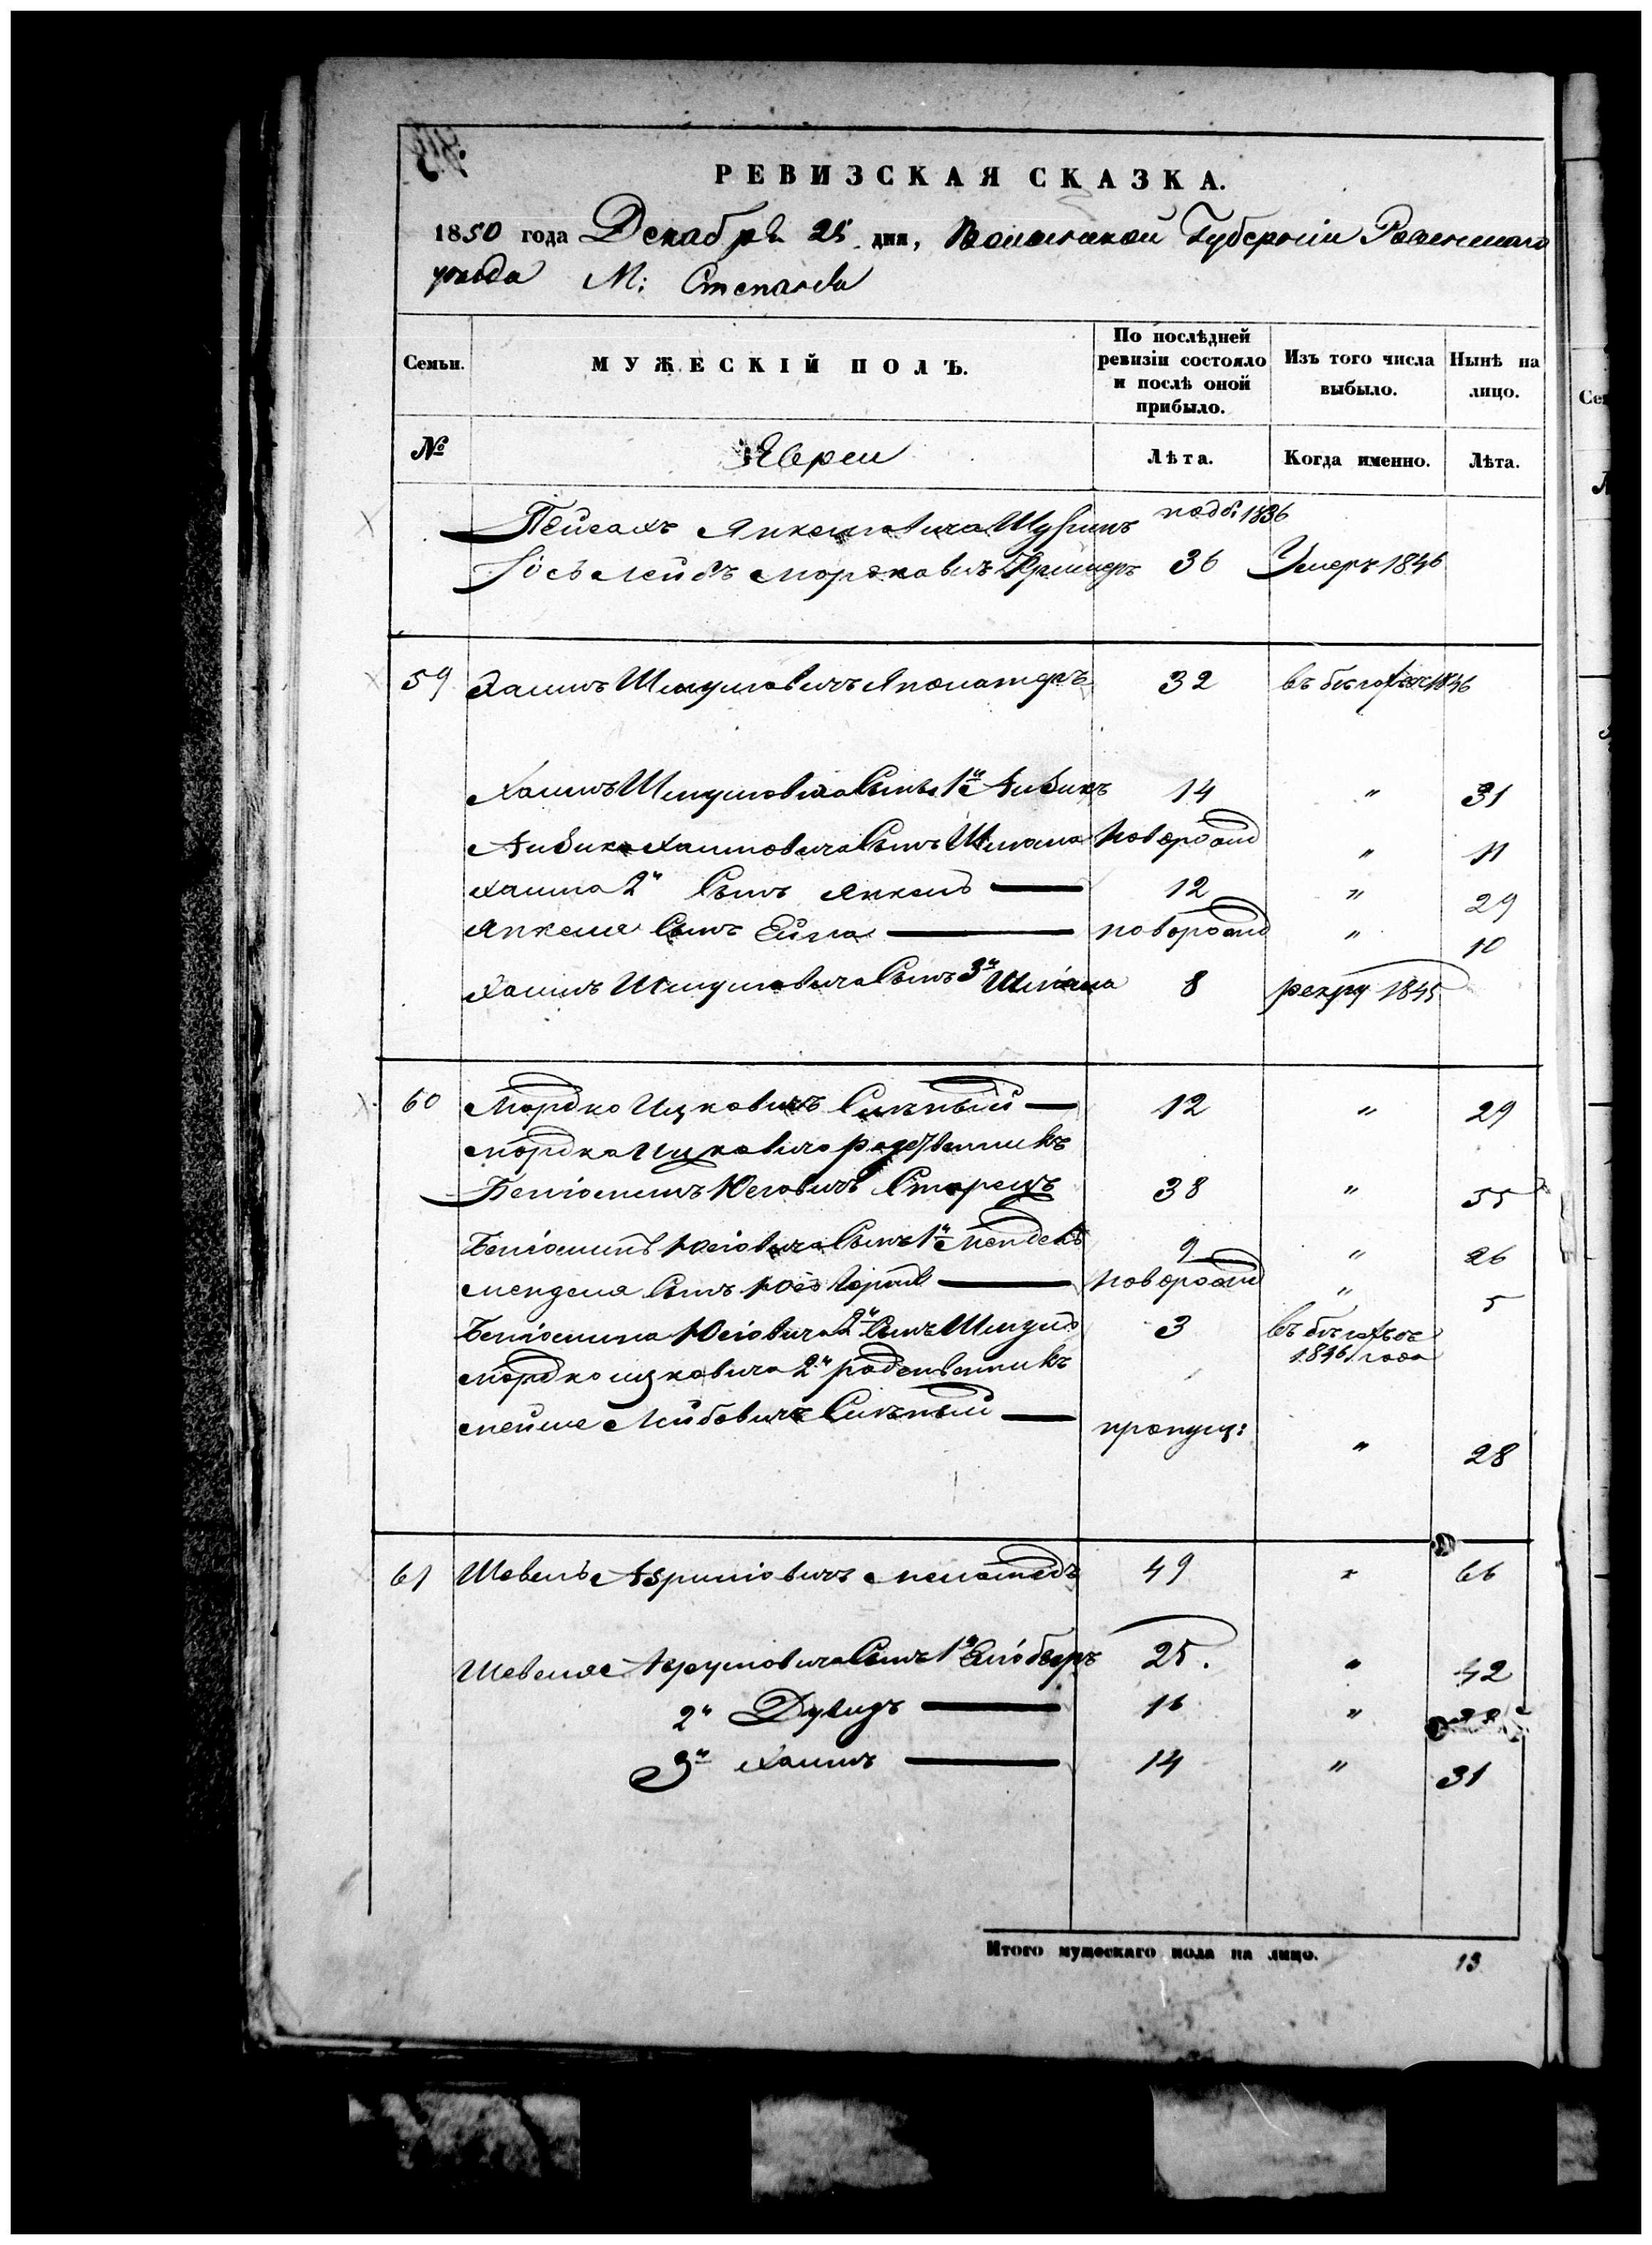 РЕВИЗСКАЯ СКАЗКА.
1850 года Декабря 25 дня, Волынской Губерніи Ровенскаго
уѣзда М: Степаня
Семьи. МУЖЕСКІЙ ПОЛЪ. По послѣдней ревизіи состояло и послѣ оной прибыло. Изъ того числа выбыло. Нынѣ на лицо.
№ Евреи Лѣта. Когда именно. Лѣта.
Пейсахъ Янкелевича 1836
Іось Лейбъ Мордковичъ 36 Умеръ 1846
59 Хаимъ Шмуловичъ 32 въ бѣгахъ съ 1846
Хаимъ Шмуловича Сынъ 1й Айзикъ 14 " 31
Айзика Хаимовича Сынъ новорожд " 11
Хаима 2й Сынъ Янкель 12 " 29
Янкеля Сынъ новорожд " 10
Хаимъ Шмуловича Сынъ 3й 8 рекру 1845
60 Мордко Ицковичъ Сильный 12 " 29
Мордка Ицковича родственникъ
Беніоминъ Юсіовичъ Старецъ 38 " 55
Беніоминъ Юсіовича Сынъ 1й Мендель 9 " 26
Менделя Сынъ новорожд " 5
Беніомина Юсіовича 2й Сынъ Шмуль 3 въ бѣгахъ съ
1846 года
Мордко Ицковича 2й родственникъ
Мейше Лейбовичъ Сильный пропущ: " 28
61 Шевель Меламедъ 49 " 66
Шевеля Сынъ 1й 25. " 42
2й Дувидъ 16 "
3й Хаимъ 14 " 31
Итого мужескаго пола на лицо. 13